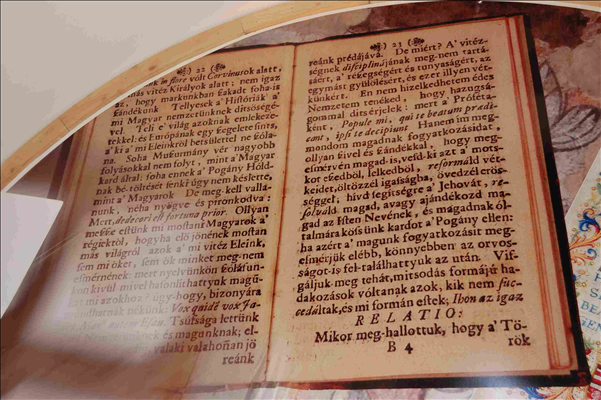 22
in flore volt Corvinus alatt,
más vitéz Királyok alatt; nem igaz
az, hogy markunkban ſzakadt ſoha-is
ſzándékunk. Tellyeſek a' Hiſtóriák a'
mi Magyar nemzetünknek dirſőſégé-
vel. Teli e' világ azoknak emlekeze-
tekkel: és Európának egy ſzegelete ſints,
a' ki a' mi Eleinkről betsülettel ne ſzólan-
na. Soha Muſulmány vér nagyobb
folyáſokkal nem folyt, mint a' Magyar
kard által: ſoha ennek a' Pogány Hóld-
nak bé-töltését ſenki úgy nem késlelte,
mint a' Magyarok De meg-kell valla-
nunk, néha nyögve és pironkodva:
Mert, dedecori eſt fortuna prior. Ollyan
meſſze eſtünk mi moſtani Magyarok a'
régiektől, hogyha elő jönének moſtan
más világról azok a' mi vitéz Eleink,
ſem mi őket, ſem ők minket meg-nem
eſmérnének: mert nyelvünkön ſzóllſun-
kon kivül mivel haſonlíthattyuk magun-
kat mi azokhoz? úgy-hogy, bizonyára
mondhatnák nekünk: Vox quidē vox Ja-
autem Eſau. Tsúfsága lettünk
Nemzetünknek és magunknak; el-
valaki valahoñan jő
reánk
23
reánk prédájává. De miért? A' vitéz-
ſégnek diſciplinájának meg-nem tartá-
sáért, a' rézegségért és tunyaságért, az
egymást gyűlölésért, és ezer illyen vét-
künkért. En nem hizelkedhetem édes
Nemzetem tenéked, hogy hazugsá-
gommal ditsérjelek: mert a' Próféta-
ként, Popule mi, qui te beatum prædi-
cant, ipſi te decipiunt. Hanem im meg-
mondom magadnak fogyatkozásidat,
ollyan ſzivel és ſzándékkal, hogy meg-
eſmérvén magad-is, veſd-ki azt a' mots-
kot ebedből, lelkedből, reformáld vét-
keidet, öltözzél igaſságba, övedzél erős-
séggel; hivd ſegítségre a' Jehovát, re-
ſolváld magad, avagy ajándékozd ma-
gad az Iſten Nevének, és magadnak ól-
talmára kösſünk kardot a' Pogány ellen:
ha azért a' magunk fogyatkozásit meg-
eſmérjük elébb, könnyebben az orvos-
ságot-is fel-találhattyuk az után. Viſ-
gáljuk meg tehát, mitsodás formájú ha-
dakozások vóltanak azok, kik nem ſuc-
cedáltak, és mi formán eſtek; Ihon az igaz
RELATIO:
Mikor meg-hallottuk, hogy a' Tö-
B 4 rök